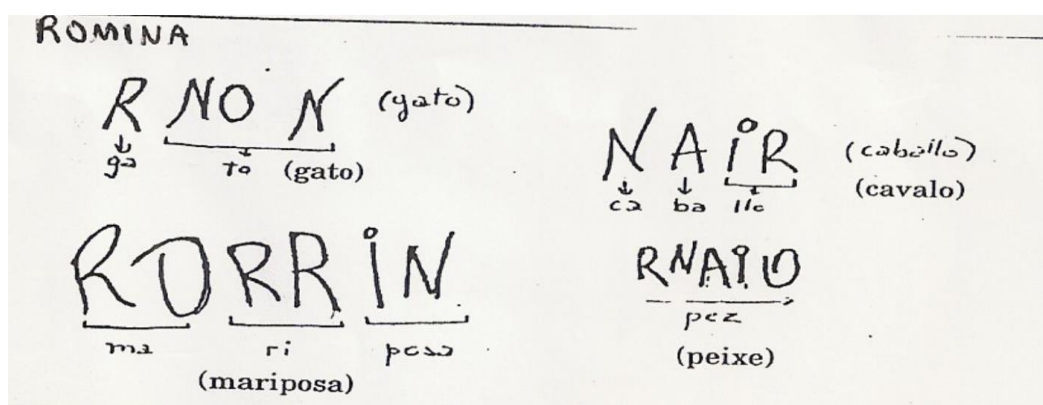 ROMINA
R NO N (gato)
ga to (gato)
NAiR (caballo)
ca ba llo (cavalo)
RORRiN
ma ri posa
(mariposa)
RNAiO
pez
(peixe)